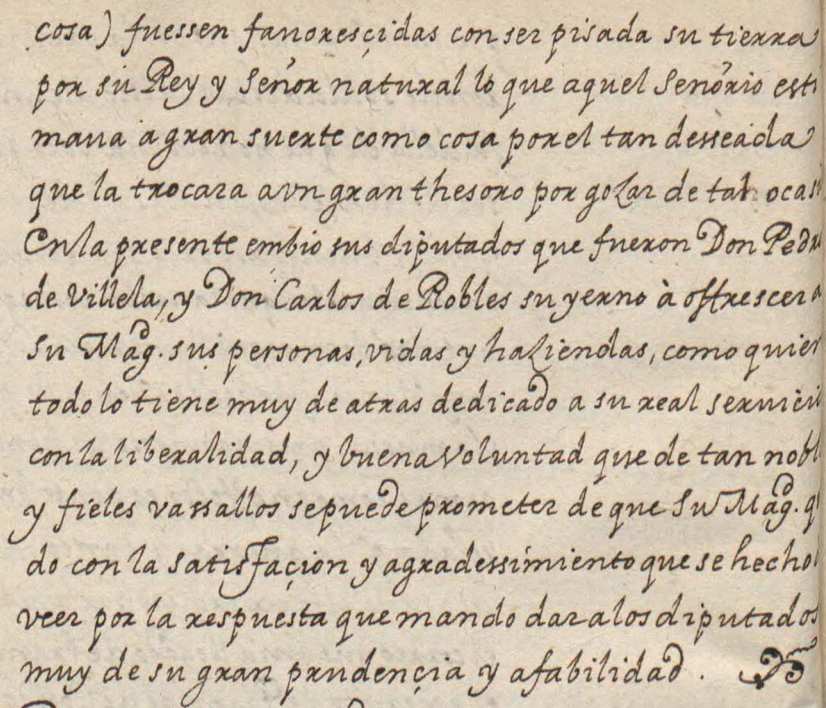 cosa) fuessen fauoresçidas con ser pisada su tierra
por su Rey y Señor natural lo que aquel Señorio esti
maua a gran suerte como cosa por el tan desseada
que la trocara a vn gran thesoro por goZar de tal ocas
En la presente embio sus diputados que fueron Don Pedr
de Villela, y Don Carlos de Robles su yerno à offrescer a
Su Magd. sus personas, vidas y haZiendas, como quier
todo lo tiene muy de atras dedicado a su real seruici
con la liberalidad, y buena voluntad que de tan nobl
y fieles vassallos se puede prometer de que Su Magd. q
do con la satisfaçion y agradessimiento que se hecho
veer por la respuesta que mando dar a los diputados
muy de su gran prudençia y afabilidad.